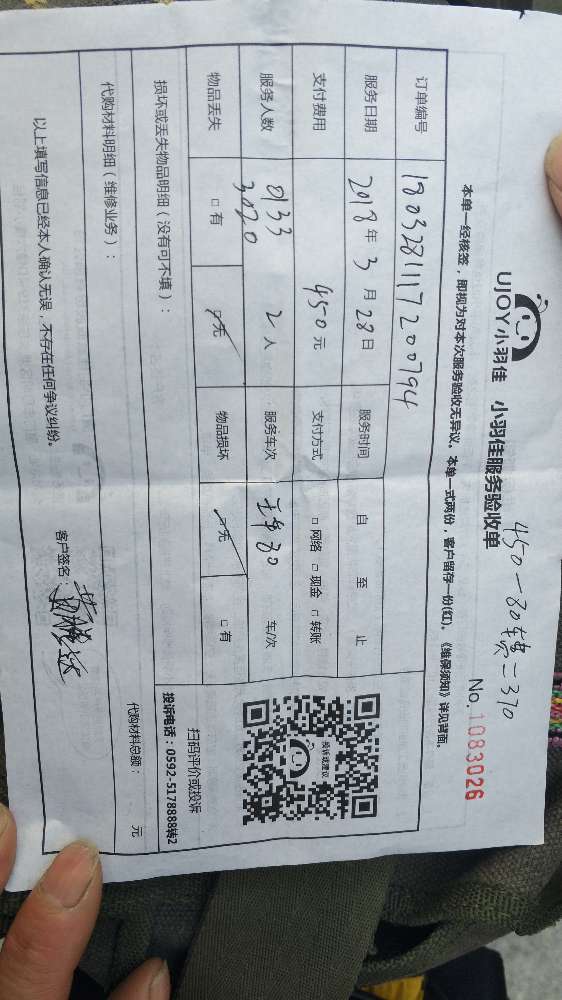 UJOY小羽佳 小羽佳服务验收单
450-80車费=370
No.1083026
本单一经核签，即视为对本次服务验收无异议。本单一式两份，客户留存一份(红)。《维保须知》详见背面。
订单编号 1803281117200794
服务日期 2018年3月28日 服务时间 自 至 止
支付费用 450元 支付方式 □网络 □现金 □转账
服务人数 0133 3020 2人 服务车次 车/次
物品丢失 □有 □无 物品损坏 □无 □有
损坏或丢失物品明细（没有可不填）：
扫码评价或投诉
投诉电话：0592-5178888转2
投诉或建议
代购材料明细（维修业务）：
代购材料总额： 元
以上填写信息已经本人确认无误，不存在任何争议纠纷。
客户签名：